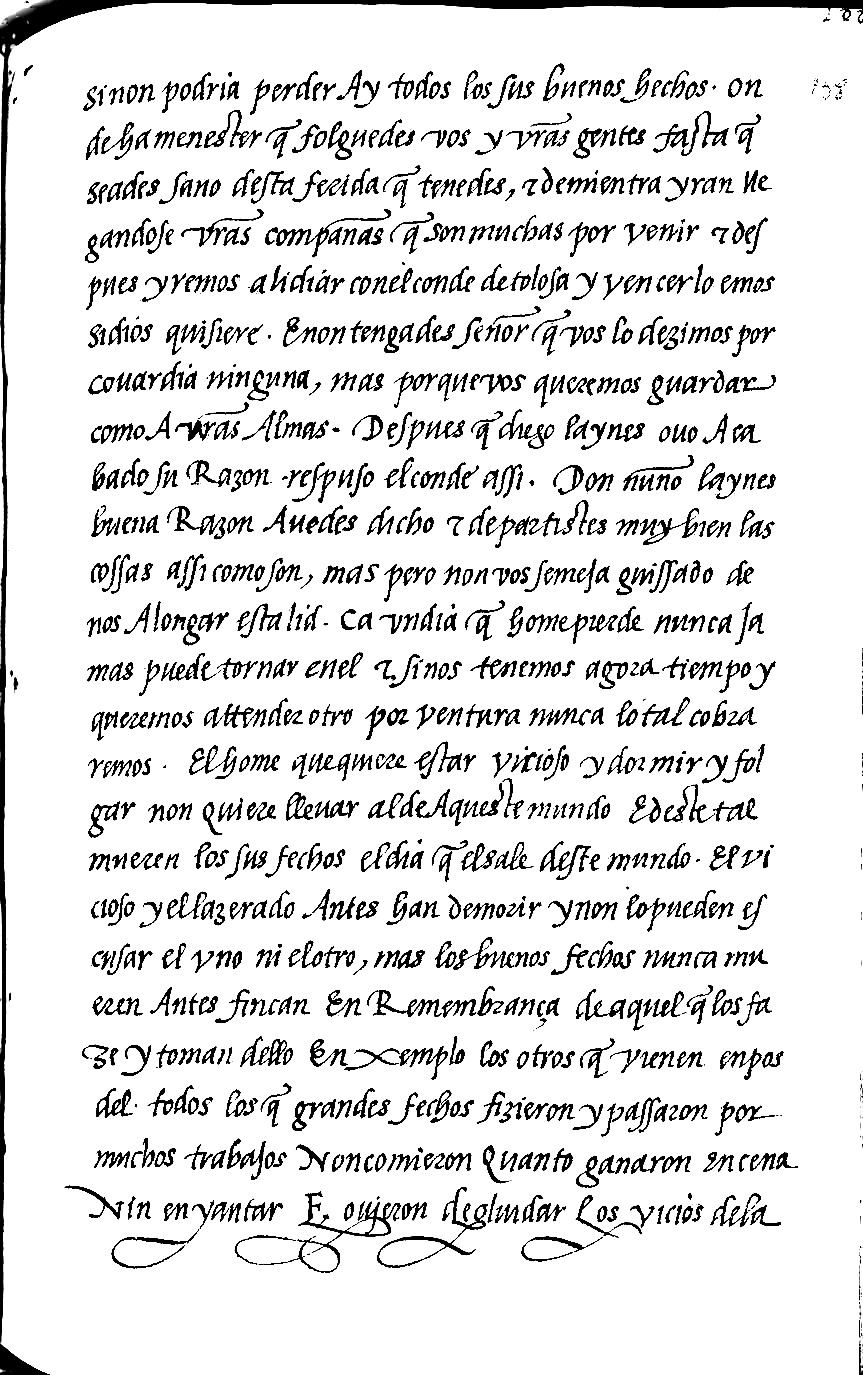 sinon podria perder Ay todos los sus buenos hechos. on
de ha menester q̃ folguedes vos y vr̃as gentes fasta q̃
seades sano desta ferida q̃ tenedes, ⁊ demientra yran lle
gandose vr̃as compañas q̃ son muchas por venir ⁊ des
pues yremos a lidiar con el conde de tolosa y vencerlo emos
si dios quisiere. E non tengades señor q̃ vos lo dezimos por
couardia ninguna, mas porque vos queremos guardar
como A vr̃as Almas. Despues q̃ diego laynes ouo Aca
bado su Razon respuso el conde assi. Don nuño laynes
buena Razon Auedes dicho ⁊ departistes muy bien las
cossas assi como son, mas pero non vos semeja guissado de
nos Alongar esta lid. Ca vn dia q̃ home pierde nunca ja
mas puede tornar en el ⁊ si nos tenemos agora tiempo y
queremos attender otro por ventura nunca lo tal cobra
remos. El home que quiere estar vicioso y dormir y fol
gar non quiere lleuar al de Aqueste mundo E deste tal
mueren los sus fechos el dia q̃ el sale deste mundo. El vi
cioso y el lazerado Antes han de morir y non lo pueden es
cusar el vno ni el otro, mas los buenos fechos nunca mu
eren Antes fincan En Remembrança de aquel q̃ los fa
ze y toman dello Enxemplo los otros q̃ vienen en pos
del. todos los q̃ grandes fechos fizieron y passaron por
muchos trabajos Non comieron Quanto ganaron En cena
Nin en yantar E ouieron de gluidar Los vicios de la